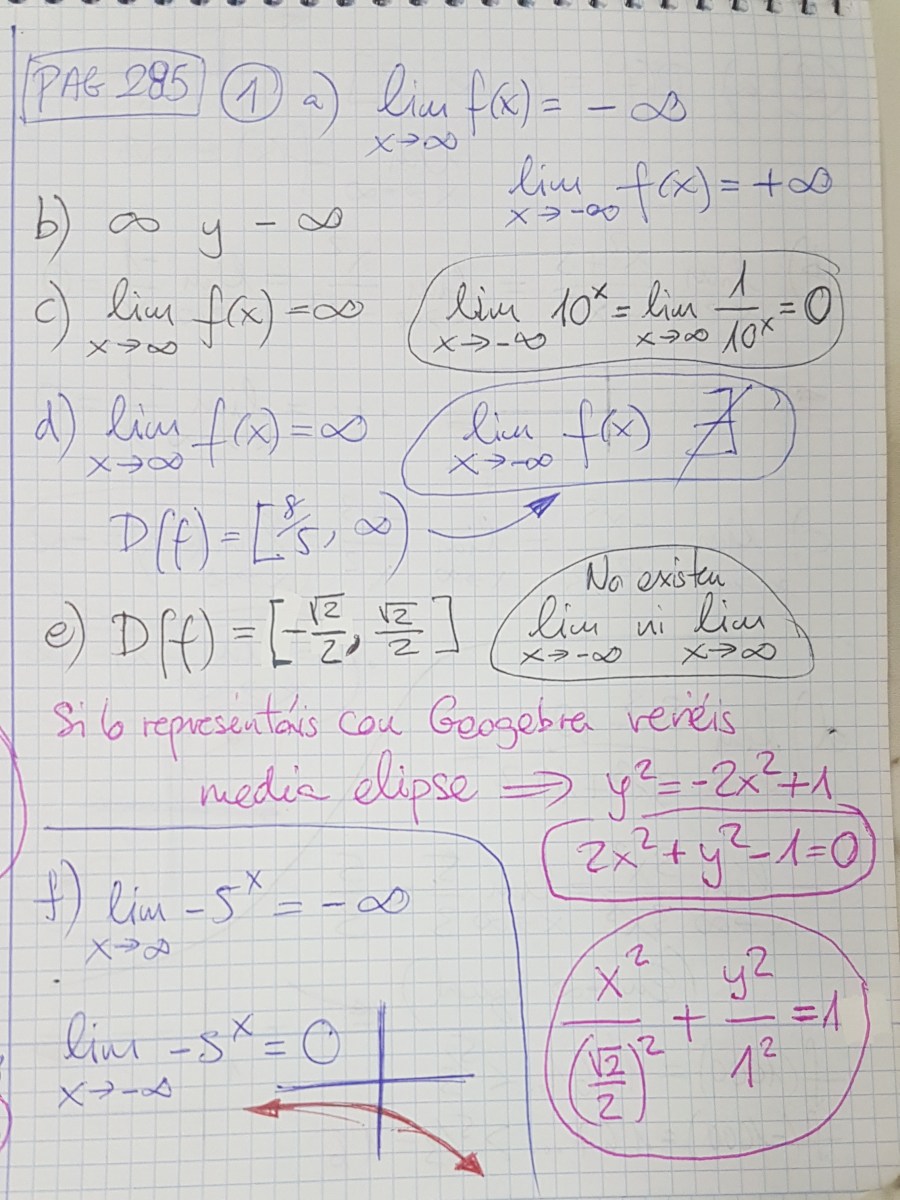 PAG 285 ① a) lim x→∞ f(x) = -∞
lim x→-∞ f(x) = +∞
b) ∞ y -∞
c) lim x→∞ f(x) = ∞ lim x→-∞ 10^x = lim x→∞ 1/10^x = 0
d) lim x→∞ f(x) = ∞ lim x→-∞ f(x) ∄
D(f) = [8/5, ∞)
e) D(f) = [-√2/2, √2/2] No existen
lim x→-∞ ni lim x→∞
Si lo representáis con Geogebra veréis
media elipse ⟹ y² = -2x² + 1
2x² + y² - 1 = 0
f) lim x→∞ -5^x = -∞
x²/(√2/2)² + y²/1² = 1
lim x→-∞ -5^x = 0